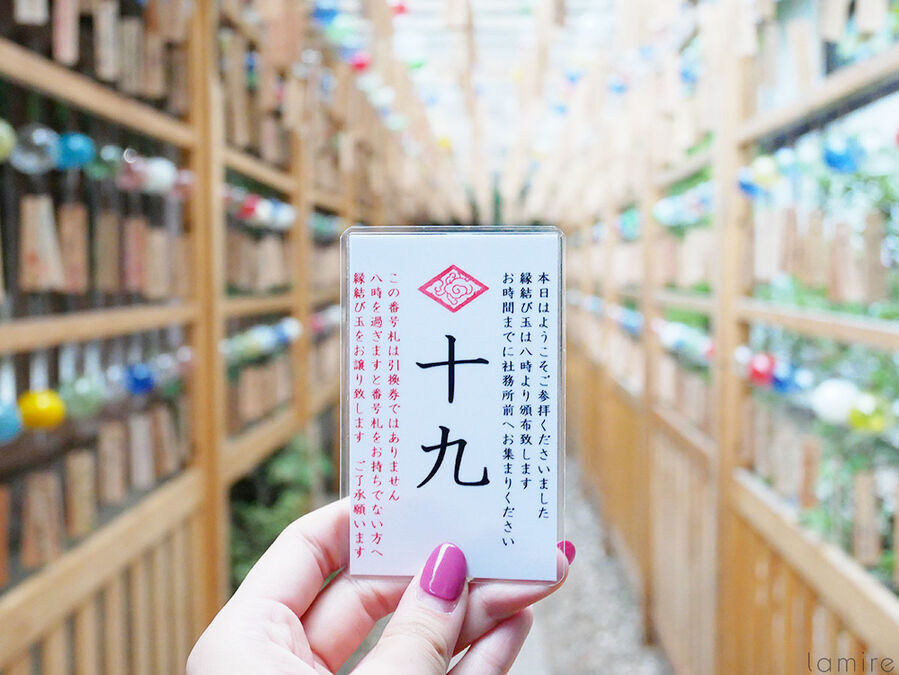 本日はようこそご参拝くださいました
縁結び玉は八時より頒布致します
お時間までに社務所前へお集まりください
十九
この番号札は引換券ではありません
八時を過ぎますと番号札をお持ちでない方へ
縁結び玉をお譲り致します　ご了承願います
lamire